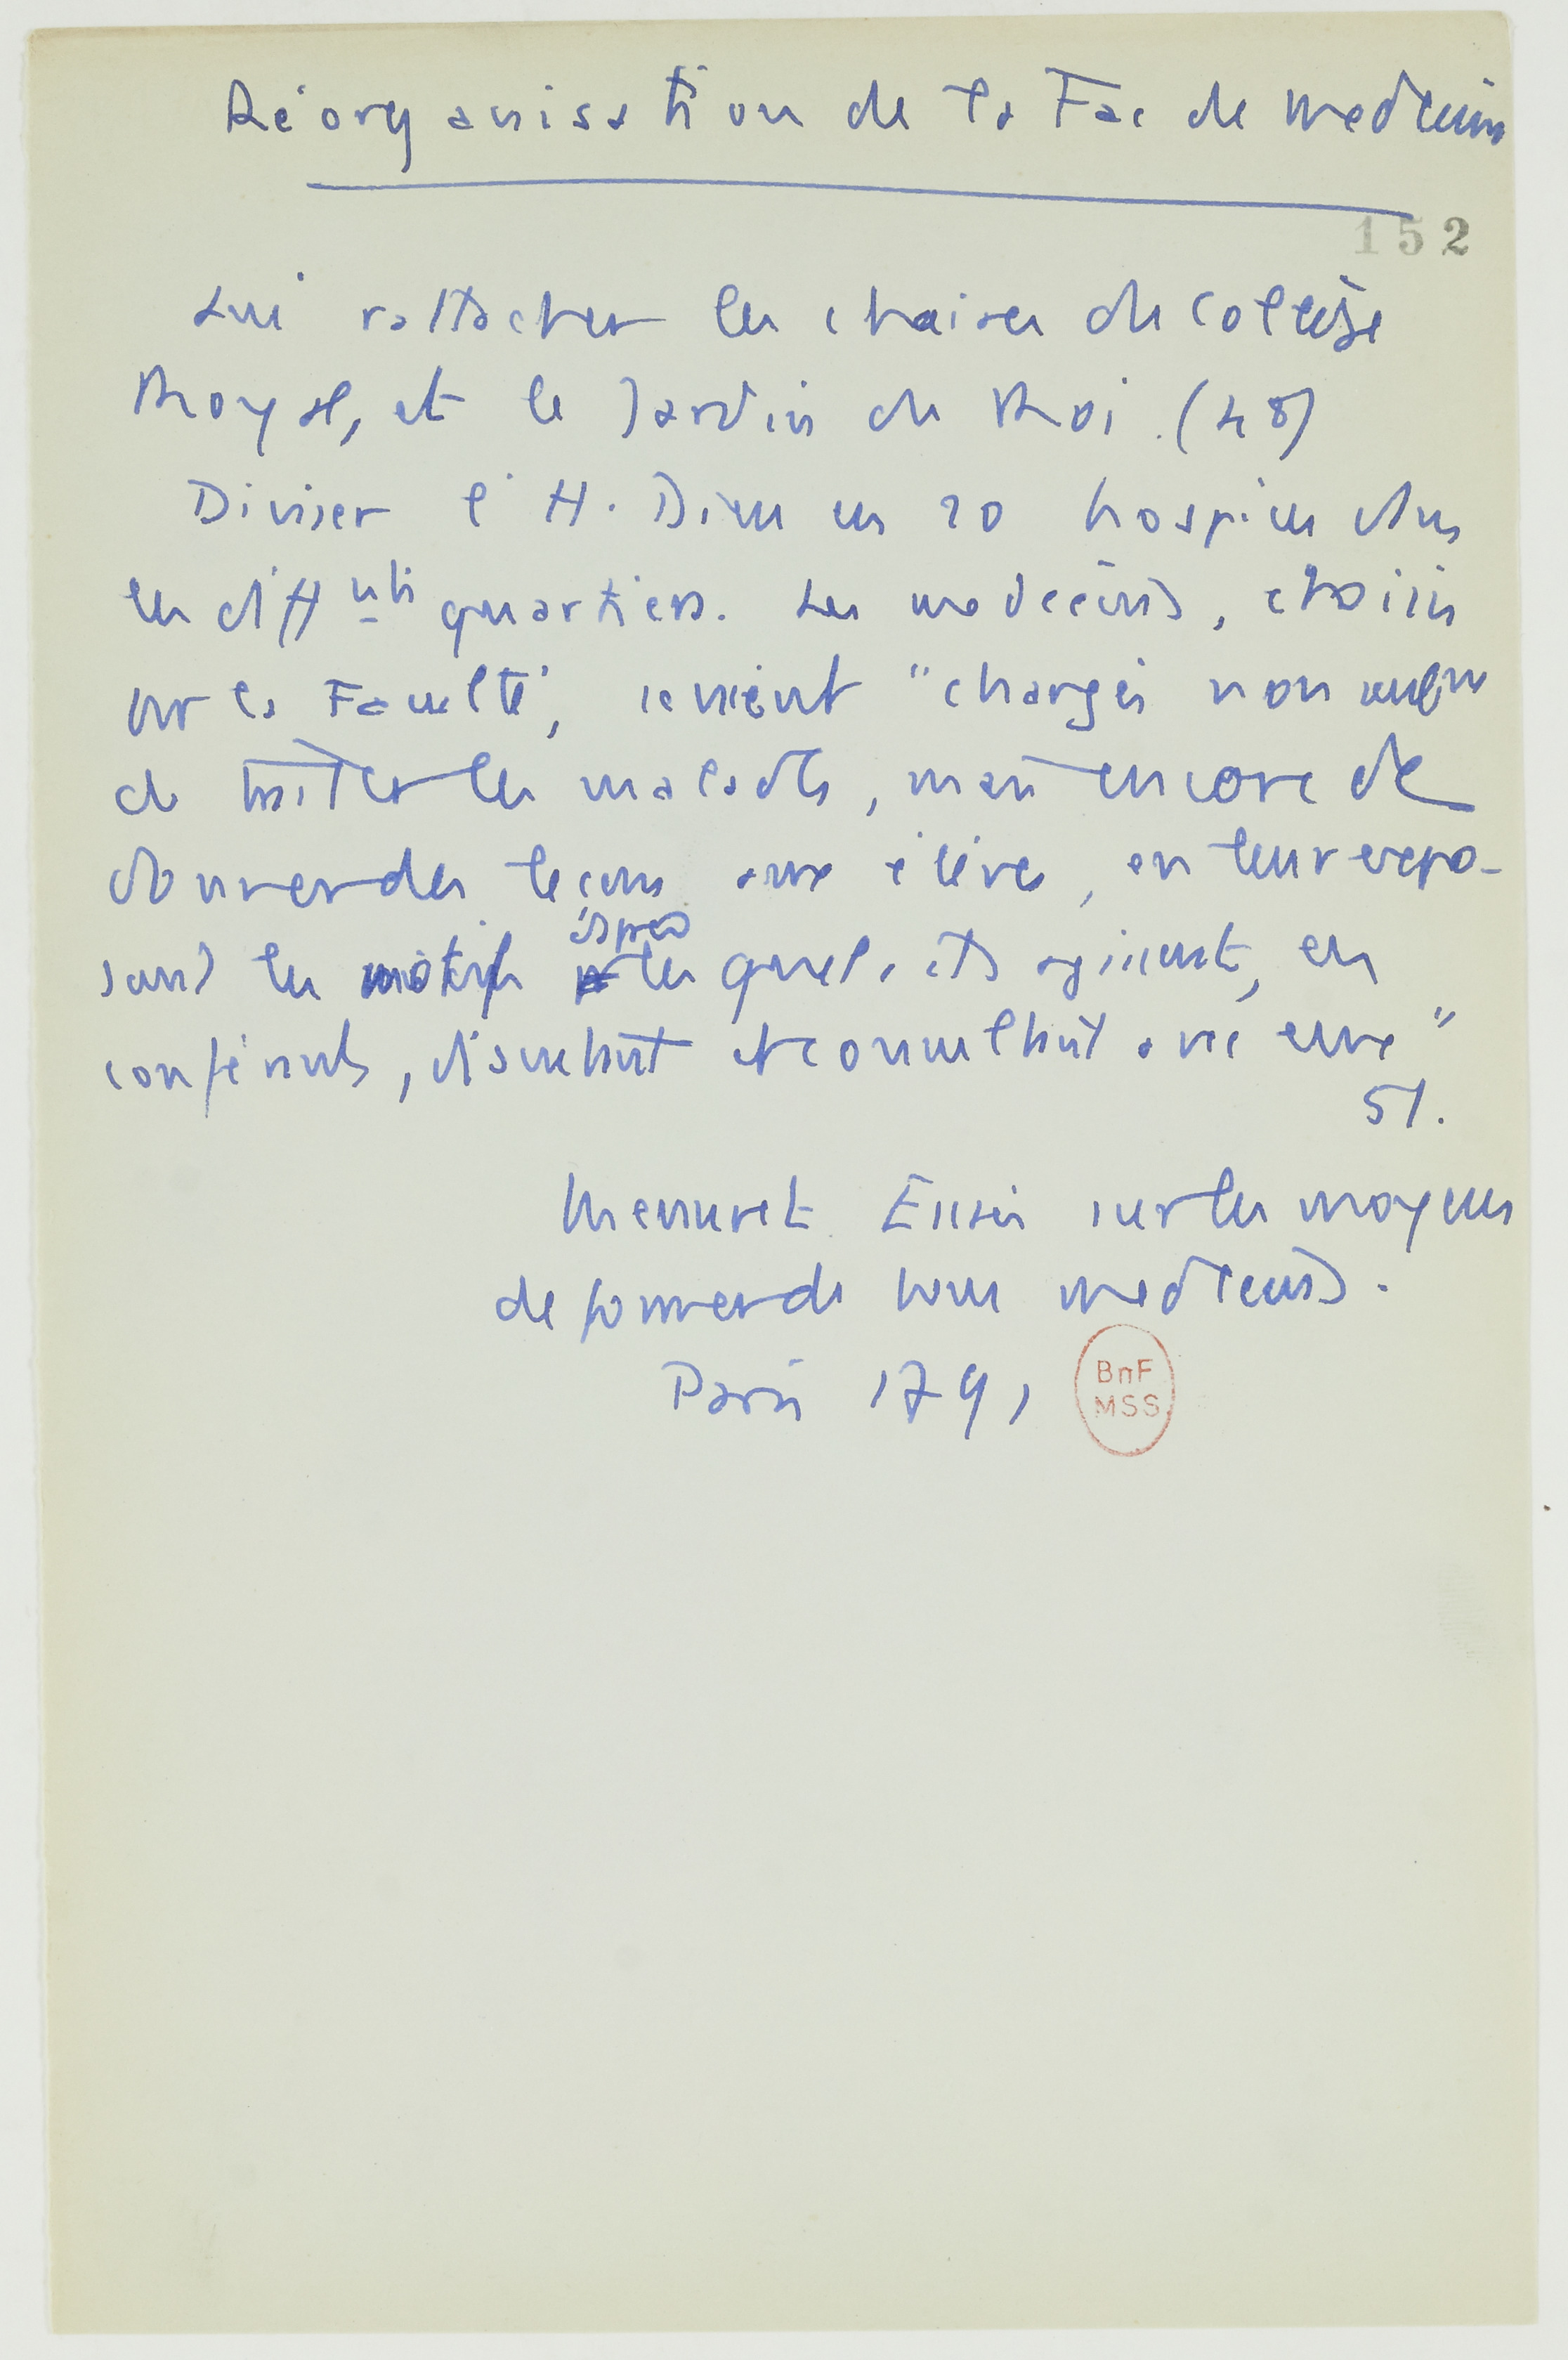 Réorganisation de la Fac de medecine
152
Lui rattacher les chaires du Collège
Royal, et le Jardin du Roi. (48)
Diviser l'H. Dieu en 20 hospices dans
les diffents quartiers. Les medecins, choisis
par la Faculté, seraient "chargés non seulem
de traiter les malades, mais encore de
donner des leçons aux élèves, en leur expo-
sant les motifs d'après lesquels ils agissent, en
conférant, discutant et consultant avec eux"
51.
Menuret Essai sur les moyens
de former de bons medecins.
Paris 1791
BnF
MSS